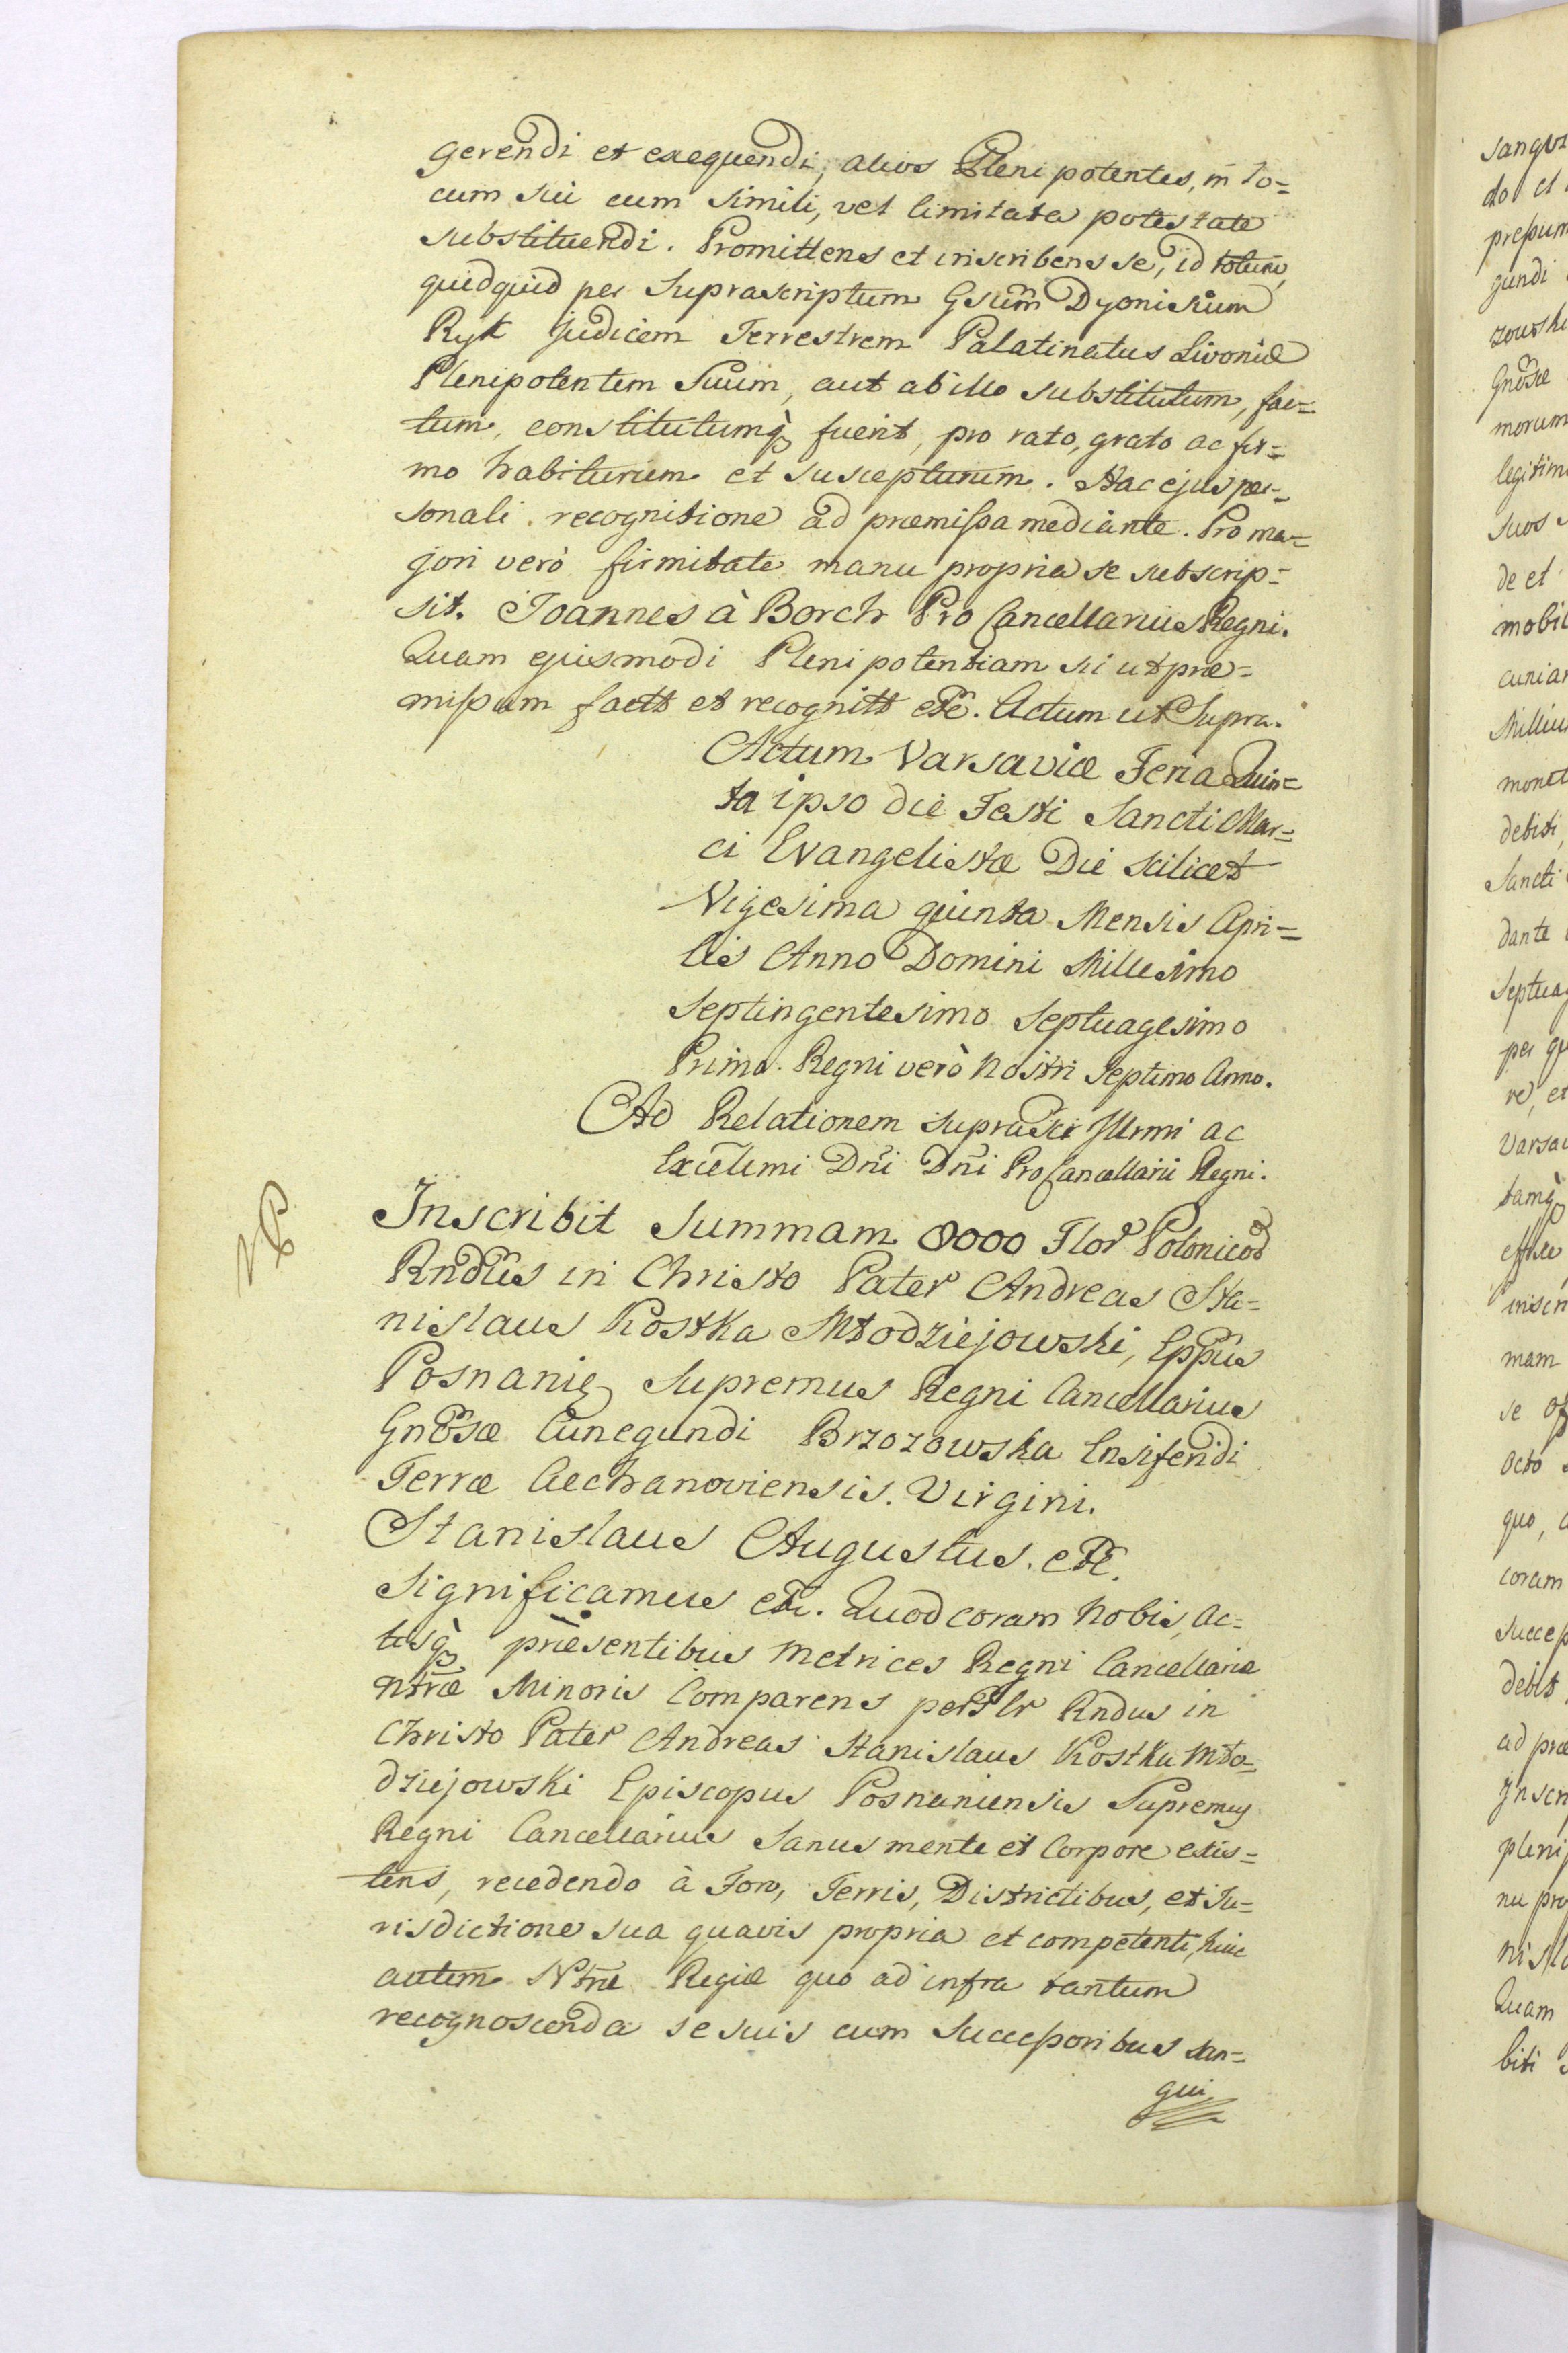 gerendi et exequendi, alios Plenipotentes, in lo=
cum sui cum simili, vel limitata potestate
substituendi. Promittens et inscribens se, id totum,
quidquid per Suprascriptum Gsum Dyonisium
Ryk Judicem Terrestrem Palatinatus Livoniæ
Plenipotentem Suum, aut ab illo substitutum, fac=
tum, constitutumq; fuerit, pro rato, grato ac fir=
mo habiturum et suscepturum. Hac ejus per=
sonali recognitione ad præmissa mediante. Pro ma=
jori verò firmitate manu propria se subscrip=
sit. Joannes à Borch Pro Cancellarius Regni.
Quam ejusmodi Plenipotentiam si ut præ=
missum factt et recognitt etc. Actum ut Supra.
Actum Varsaviæ Feria Quin=
ta ipso die Festi Sancti Mar=
ci Evangelistæ Die scilicet
Vigesima quinta Mensis Apri=
lis Anno Domini Millesimo
Septingentesimo Septuagesimo
Primo. Regni verò Nostri Septimo Anno.
Ad Relationem supradicti Illrmi ac
Excellmi Dni Dni Pro Cancellarii Regni.
Inscribit Summam 8000 Flor Polonicor
Rndus in Christo Pater Andreas Sta=
nislaus Kostka Młodziejowski, Eppus
Posnanię Supremus Regni Cancellarius
Gnosæ Cunegundi Brzozowska Ensiferidi
Terræ Ciechanoviensis. Virgini.
Stanislaus Augustus. etc.
Significamus etc. Quod coram Nobis, Ac=
tisq; præsentibus Metrices Regni Cancellariæ
ntræ Minoris Comparens perslr Rndus in
Christo Pater Andreas Stanislaus Kostka Mło=
dziejowski Episcopus Posnaniensis Supremus
Regni Cancellarius Sanus mente et Corpore exis=
tens, recedendo à Foro, Terris, Districtibus, et Ju=
risdictione sua quavis propria et competenti, huic
autem Ntræ Regiæ quo ad infra tantum
recognoscenda se suis cum Successoribus san=
gui